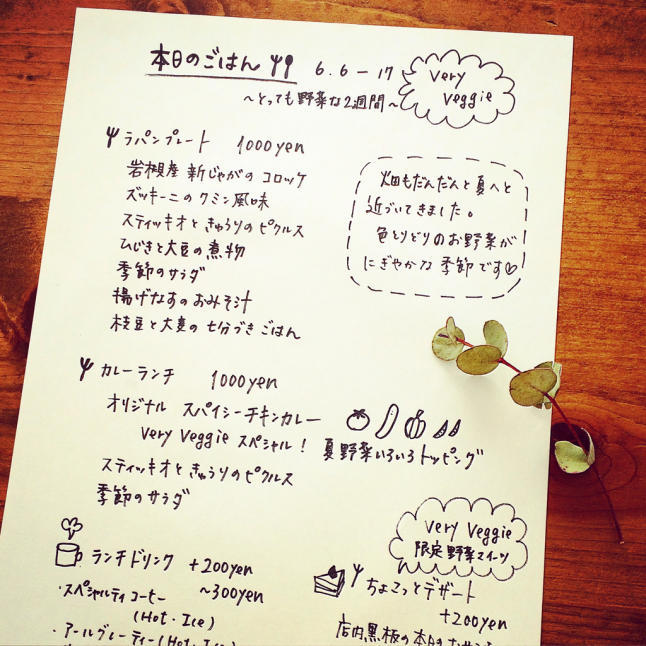 本日のごはん 6.6-17
Very Veggie
〜とっても野菜な2週間〜
ラパンプレート 1000yen
岩根産 新じゃがの コロッケ
ズッキーニの クミン風味
スティッキオと きゅうりの ピクルス
ひじきと大豆の煮物
季節のサラダ
揚げなすの おみそ汁
枝豆と大麦の 七分づき ごはん
畑もだんだんと夏へと
近づいてきました。
色とりどりのお野菜が
にぎやかな 季節です♡
カレーランチ 1000yen
オリジナル スパイシーチキンカレー
Very Veggie スペシャル!
夏野菜いろいろトッピング
スティッキオと きゅうりのピクルス
季節のサラダ
ランチドリンク +200yen
〜300yen
・スペシャルティコーヒー
(Hot・Ice)
・アールグレーティー(Hot・Ice)
Very Veggie
限定野菜スイーツ
ちょこっとデザート
+200yen
店内黒板の本日の